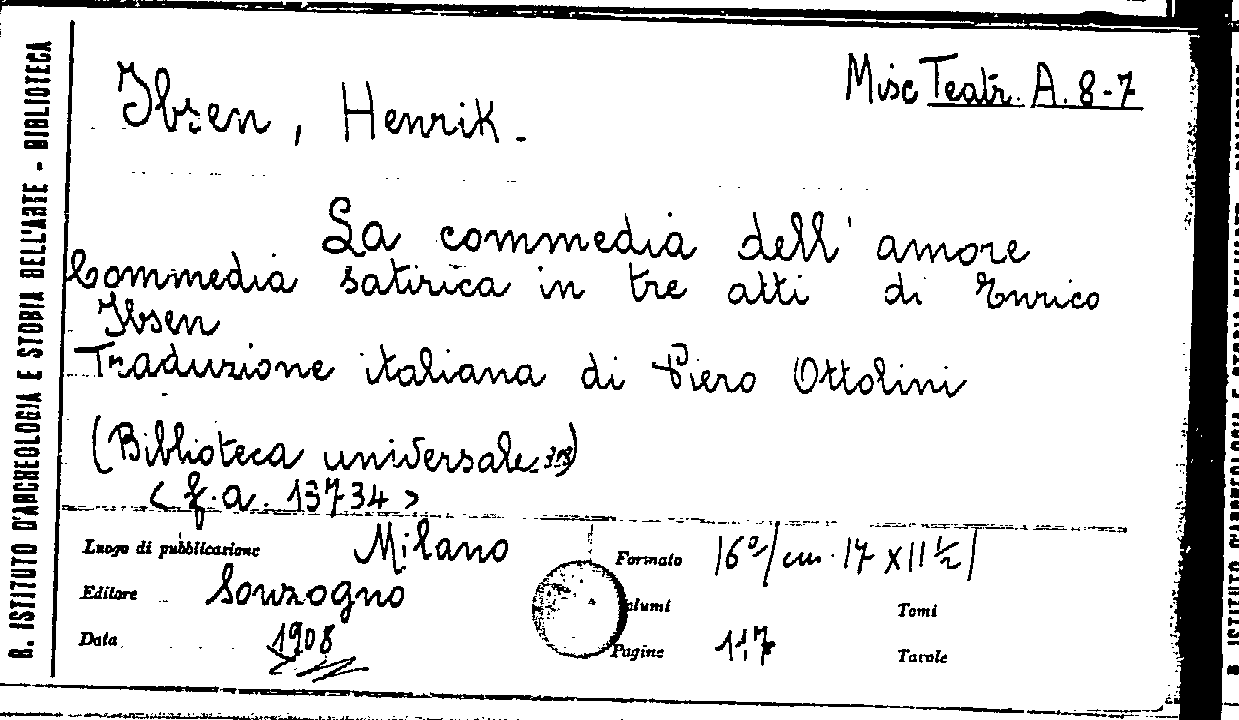 R. ISTITUTO D'ARCHEOLOGIA E STORIA DELL'ARTE - BIBLIOTECA
Misc Teatr. A. 8-7
Ibsen, Henrik.
La commedia dell'amore
Commedia satirica in tre atti di Enrico
Ibsen
Traduzione italiana di Piero Ottolini
(Biblioteca universale
< f.a. 13734 >
Luogo di pubblicazione Milano
Formato 16°/cm. 17 x 11 ½/
Editore Sonzogno
Volumi Tomi
Data 1908
Pagine 117 Tavole